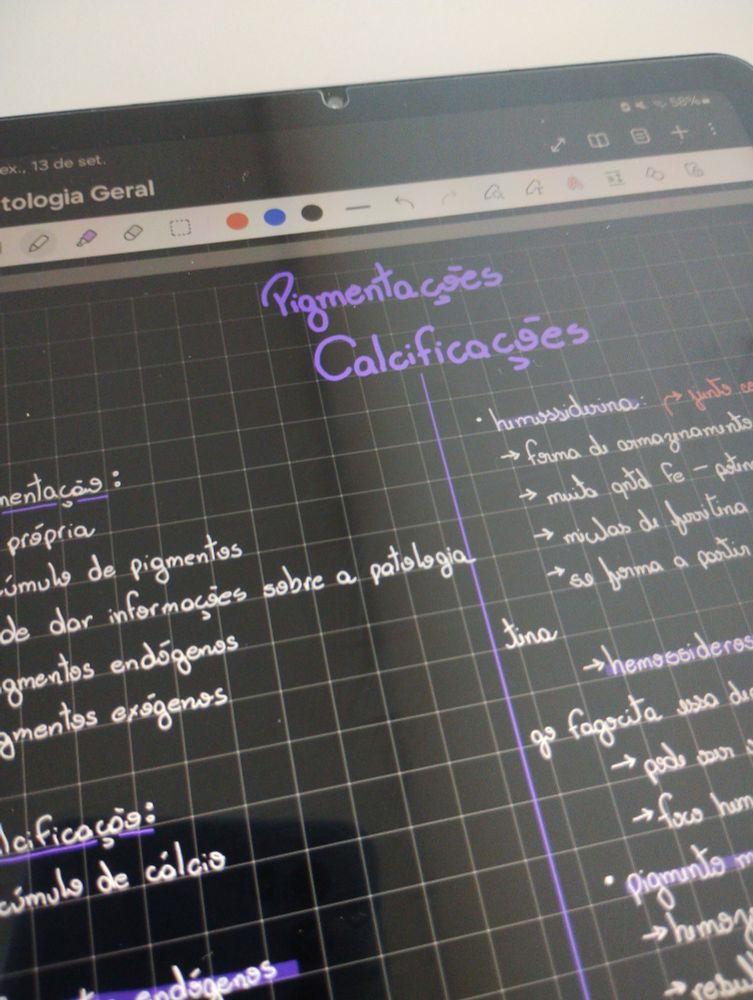 58%
ex., 13 de set.
tologia Geral
Pigmentações
Calcificações
mentação:
própria
úmulo de pigmentos
de dar informações sobre a patologia
gmentos endógenos
gmentos exógenos
lcificação:
cúmulo de cálcio
endógenos
• hemossiderina: → junto co
→ forma de armazenamento
→ muita qntd Fe -
→ micelas de ferritina
→ se forma a partir
tina
→ hemossideros
go fagocita essa de
→ pode ser
→ foco hem
• pigmento m
→ hemoz
→ resul